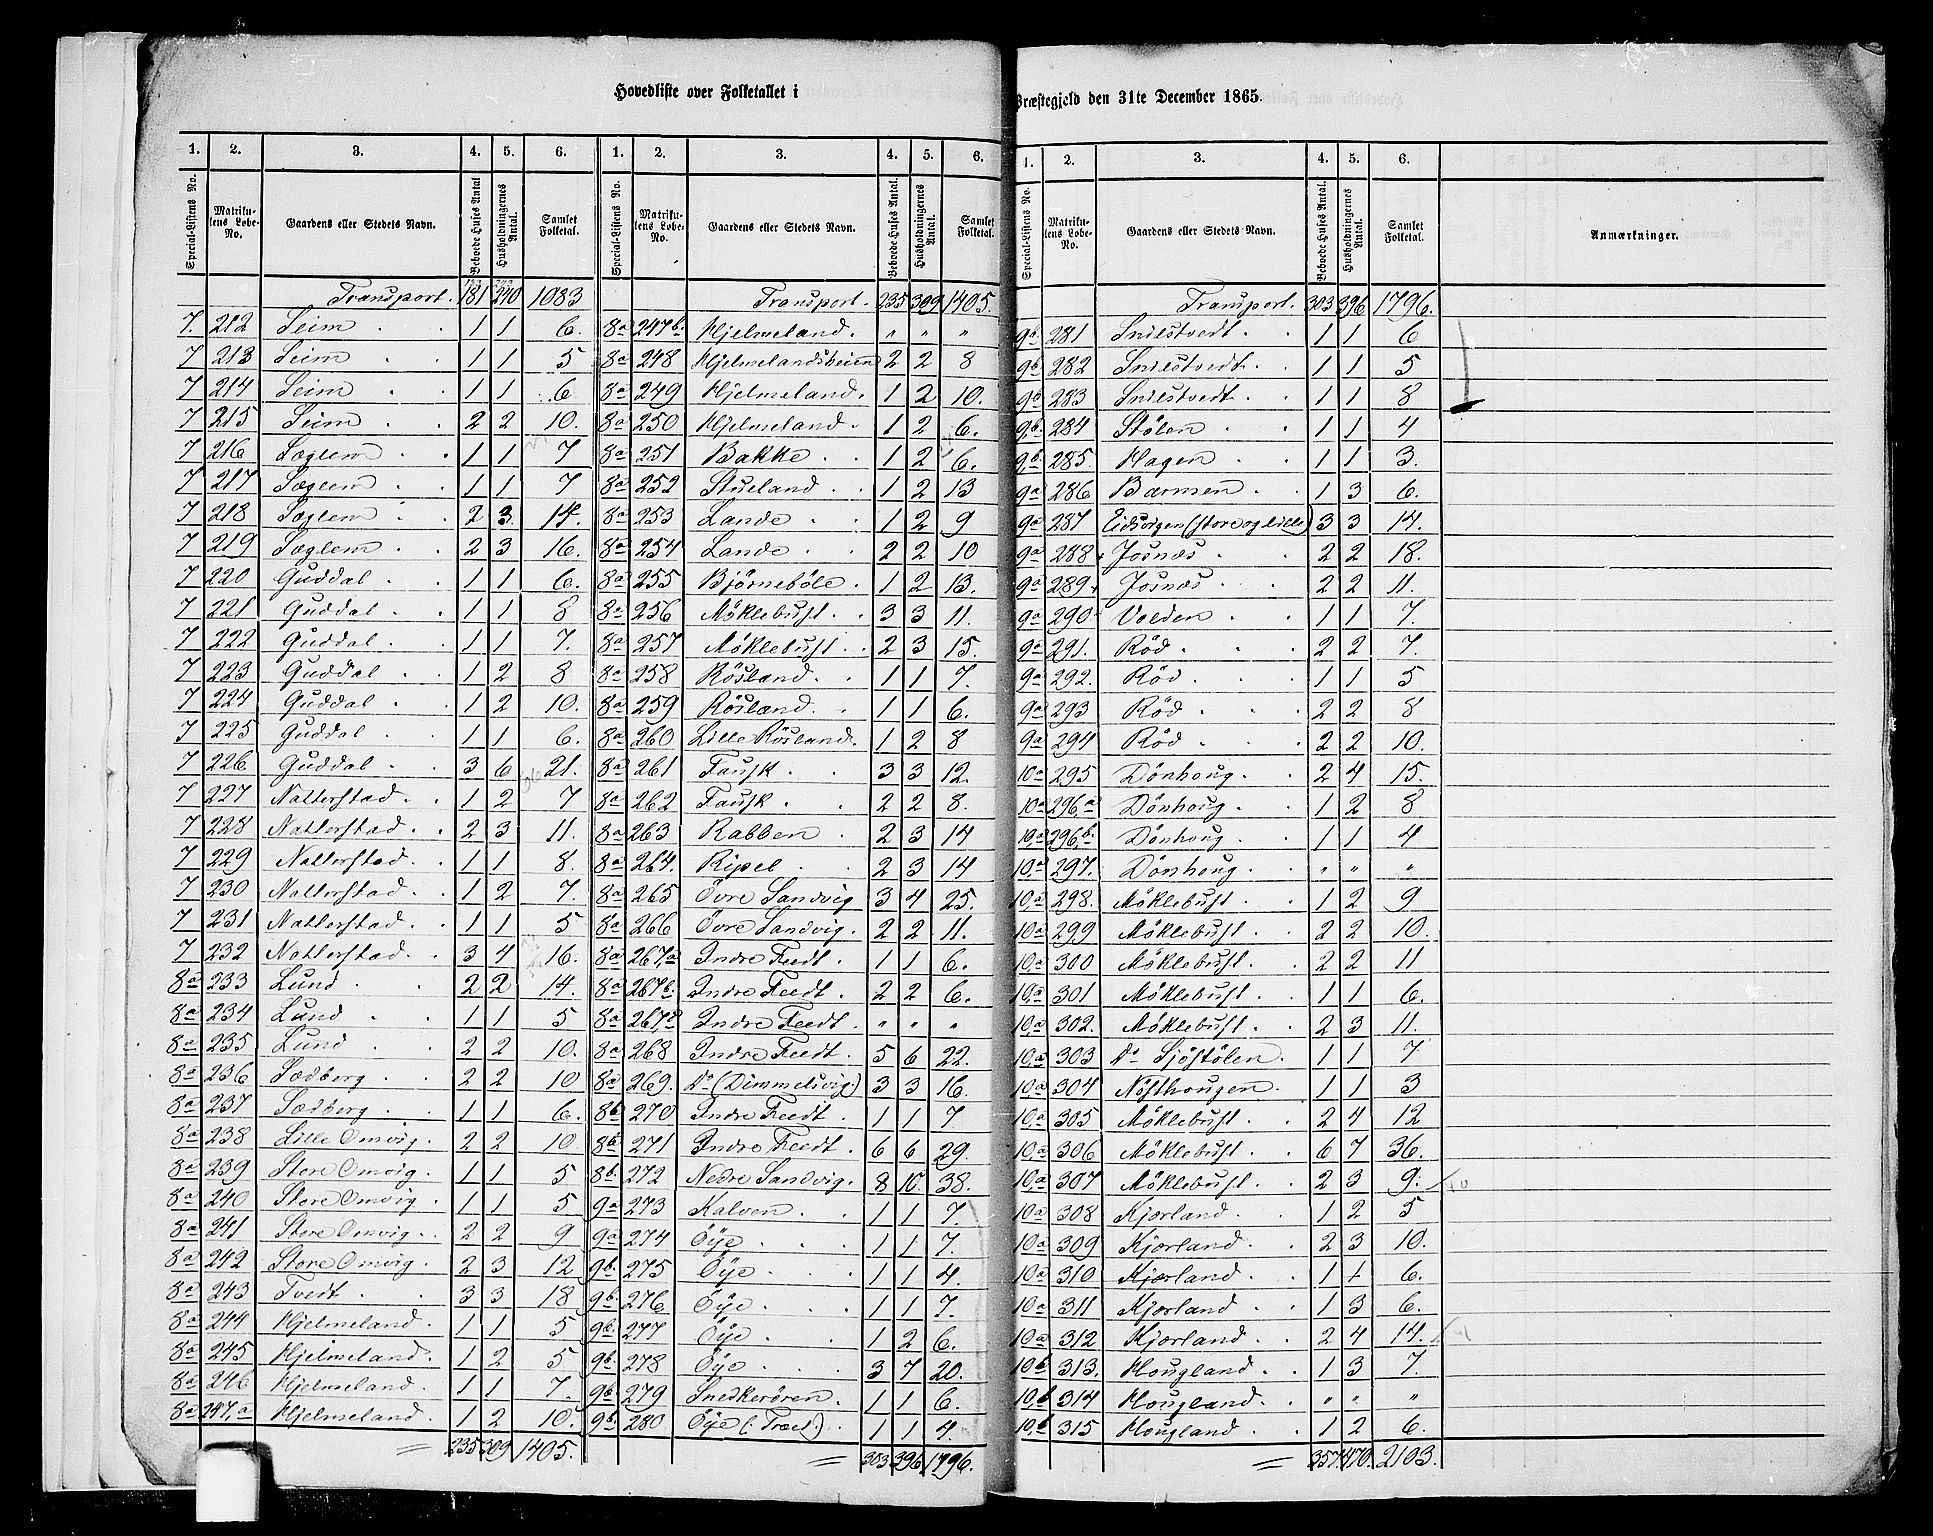 Hovedliste over Folketallet i
Præstegjeld den 31te December 1865.
1. 2. 3. 4. 5. 6.
Special-Listens No. Matrikulens Løbe-No. Gaardens eller Stedets Navn. Beboede Huses Antal Husholdningernes Antal. Samlet Folketal.
Transport. 181 240 1083
7. 212 Seim 1 1 6.
7 213 Seim 1 1 5
7 214 Seim 1 1 6
7 215 Seim 2 2 10.
7 216 Sæglem 1 1 7
7 217 Sæglem 1 1 7
7 218 Sæglem 2 3 14.
7 219 Sæglem 2 3 16.
7 220 Guddal 1 1 6.
7 221 Guddal 1 1 8
7 222 Guddal 1 1 7.
7 223 Guddal 1 2 8
7 224 Guddal 1 2 10.
7 225 Guddal 1 1 6.
7 226 Guddal 3 6 21.
7 227 Natterstad 1 2 7
7 228 Natterstad 2 3 11.
7 229 Natterstad 1 1 8.
7 230 Natterstad 1 2 7.
7 231 Natterstad 1 1 5
7 232 Natterstad 3 4 16.
8a 233 Lund 2 2 14.
8a 234 Lund 1 1 5
8a 235 Lund 2 2 10.
8a 236 Sædberg 2 2 10
8a 237 Sædberg 1 1 6.
8a 238 Lille Omvig 2 2 10
8a 239 Store Omvig 1 1 5
8a 240 Store Omvig 1 1 5
8a 241 Store Omvig 2 2 9
8a 242 Store Omvig 2 3 12
8a 243 Tvedt 3 3 18
8a 244 Hjelmeland 1 1 5
8a 245 Hjelmeland 1 2 5
8a 246 Hjelmeland 1 1 7.
8a 247,a Hjelmeland 1 2 10.
= 235 309 1405.
1. 2. 3. 4. 5. 6.
Special-Listens No. Matrikulens Løbe-No. Gaardens eller Stedets Navn. Beboede Huses Antal Husholdningernes Antal. Samlet Folketal.
Transport. 235 309 1405.
8a 247b. Hjelmeland. " " "
8a 248 Hjelmelandsbeien 2 2 8
8a 249 Hjelmeland. 1 2 10.
8a 250 Hjelmeland. 1 2 6.
8a 251 Bakke 1 2 6.
8a 252 Stueland 1 2 13
8a 253 Lande 1 2 9
8a 254 Lande 2 2 10
8a 255 Bjørneböle. 1 2 13.
8a 256 Möklebust 3 3 11.
8a 257 Möklebust 2 3 15.
8a 258 Rösland 1 1 7.
8a 259 Rösland. 1 1 6.
8a 260 Lille Rösland. 1 2 8
8a 261 Fausk 3 3 12.
8a 262 Fausk 2 2 8.
8a 263 Rabben 2 3 14
8a 264. Ripel 2 3 14
8a 265 Övre Sandvig 3 4 25.
8a 266 Övre Sandvig. 2 2 11.
8a 267,a Indre Feedt. 1 1 6.
8a 267b. Indre Feedt. 2 2 6.
8a Indre Feedt. " " "
8a 268 Indre Feedt. 5 6 22.
8a 269. Do (Dimmelsvig) 3 3 16.
8b 270 Indre Feedt 1 1 7.
8b. 271 Indre Feedt 6 6 29.
8b. 272 Nedre Sandvig. 8 10. 38.
9a 273 Kalven 1 1 7.
9a 274 Öye 1 1 7.
9b. 275 Öye 1 1 4.
9b. 276 Öye 1 1 7.
9b. 277 Öye 1 2 6.
9b. 278 Öye 3 7 20.
9b. 279 Snedkerören 1 1 6.
9b. 280 Öye (: Træet). 1 1 4.
= 303 396 1796.
1. 2. 3. 4. 5. 6.
Special-Listens No. Matrikulens Løbe-No. Gaardens eller Stedets Navn. Beboede Huses Antal. Husholdningernes Antal. Samlet Folketal. Anmærkninger.
Transport. 303 396 1796.
9b. 281 Snilstvedt. 1 1 6
9b 282 Snilstvedt. 1 1 5
9b 283 Snilstvedt. 1 1 8
9,b. 284 Stölen 1 1 4
9,b. 285. Hagen 1 1 3.
9a 286 Barmen 1 3 6.
9a 287 (Store og Lille) 3 3 14.
9a 288 Josnæs 2 2 18.
9a 289 Josnæs 2 2 11.
9a 290 Volden 1 1 7.
9a 291. Röd 2 2 7.
9a 292. Röd 1 1 5
9a 293 Röd 2 2 8
9a 294 Röd 2 2 10.
10a 295 Dönhoug. 2 4 15.
10a 296,a Dönhoug 1 2 8
10a 296,b. Dönhoug 1 1 4
10,a 297. Dönhoug. " " "
10,a 298. Möklebust 1 2 9
10a 299 Möklebust. 2 2 10.
10,a 300 Möklebust. 2 2 11
10,a 301 Möklebust. 1 1 6.
10,a 302. Möklebust. 2 3 11.
10,a 303 Do Sjöstölen. 1 1 7
10,a 304 Nosthougen. 1 1 3
10,a 305 Möklebust 2 4 12
10,a 306 Möklebust 6 7 36.
10,a 307 Möklebust 2 3 9.
10a 308 Kjærland. 1 2 5
10a 309 Kjærland. 2 3 10.
10a 310 Kjærland 1 1 6.
10a 311 Kjærland 1 3 6.
10a 312 Kjærland 2 4 14.
10b 313. Hougland 1 3 7.
10,b 314 Hougland " " "
10,b 315 Hougland 1 2 6.
= 357. 470. 2103.